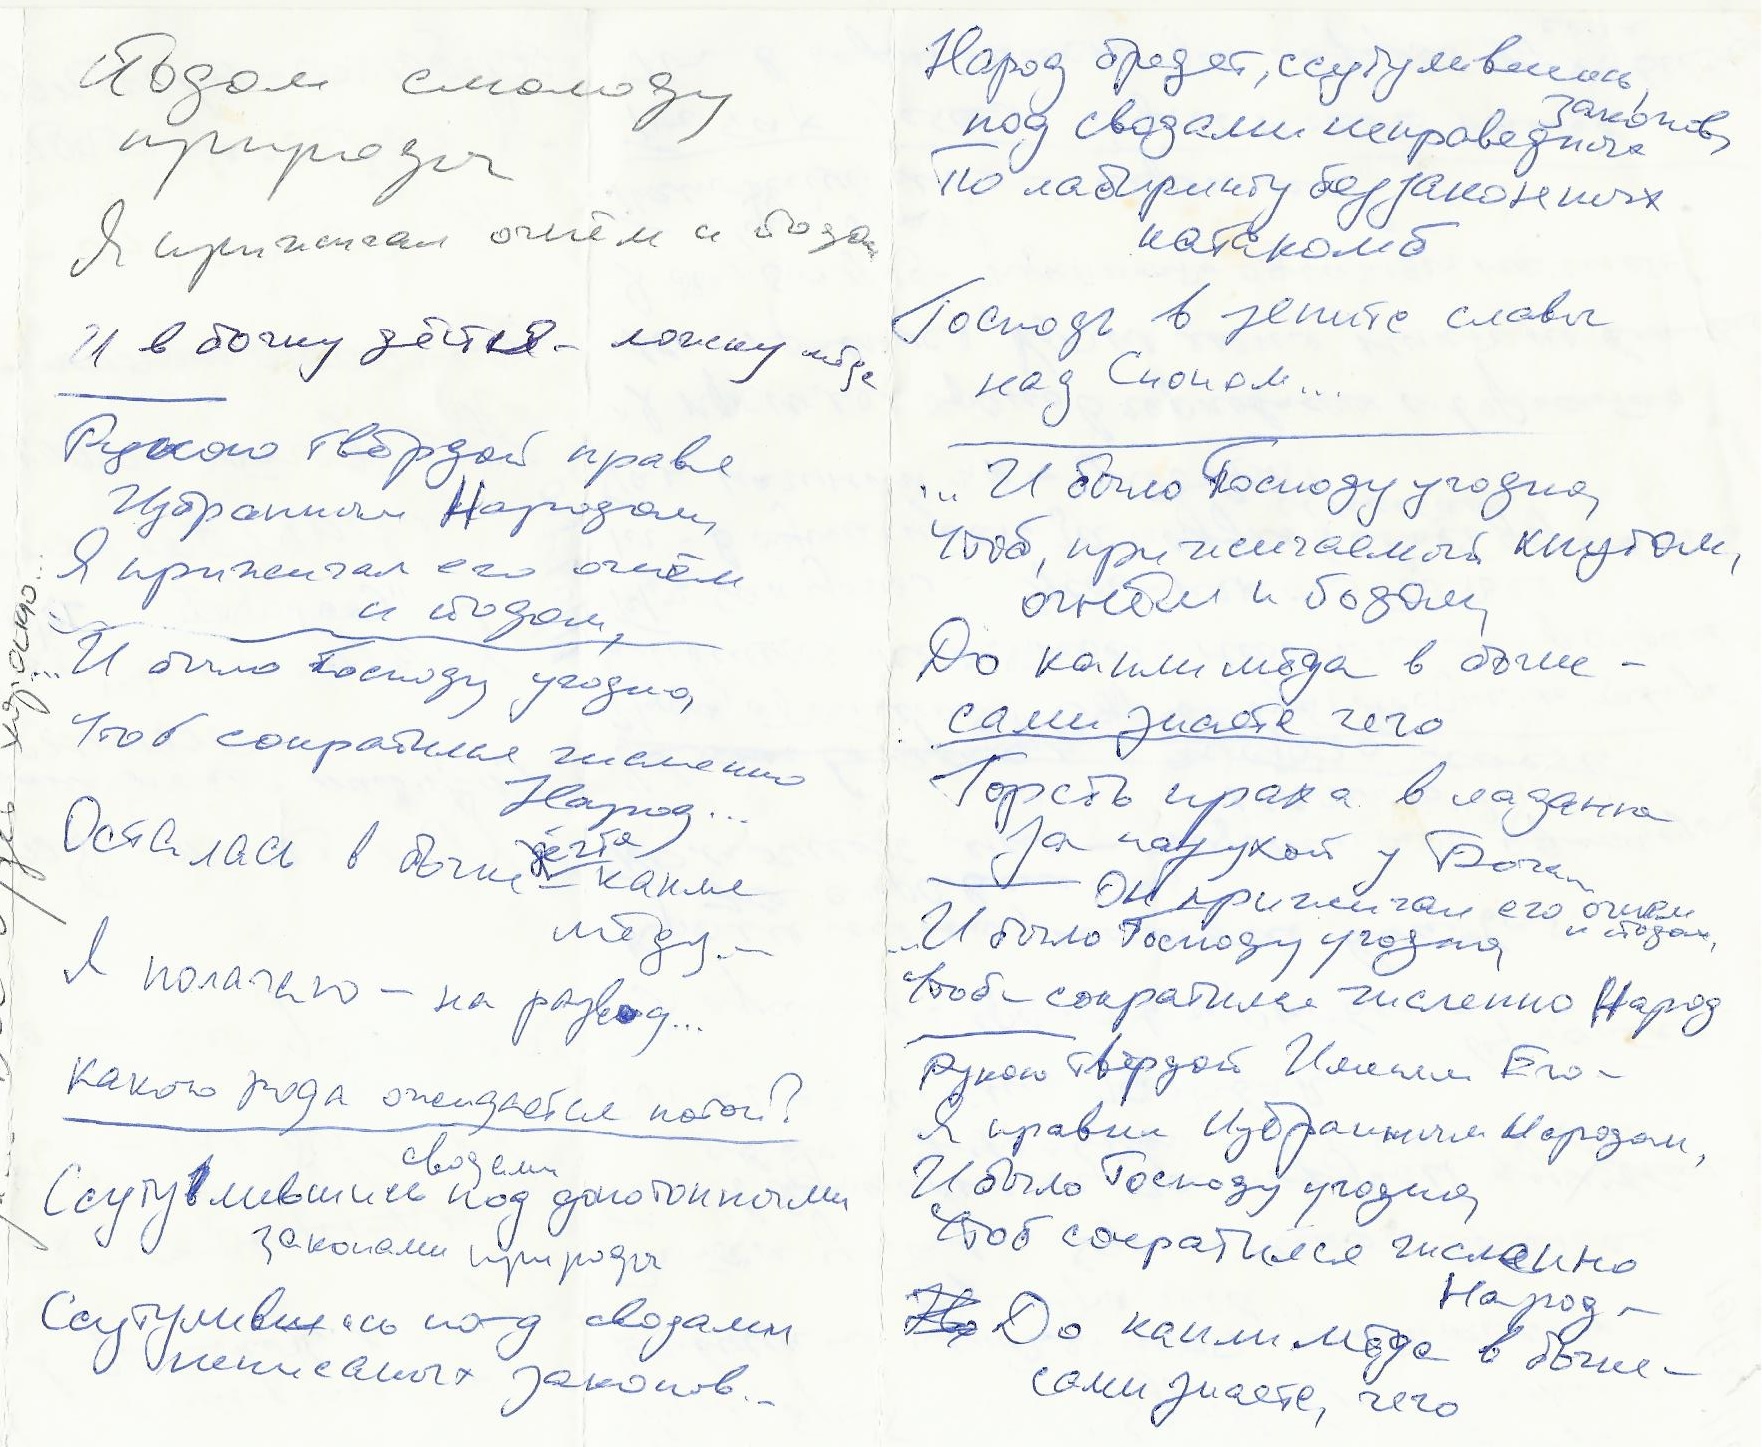 Йодом смолоду
природы
Я прижигал огнём и йодом
И в бочку дёгтя – ложку мёда
Рукою твёрдой правя
Избранным Народом,
Я прижигал его огнём
и йодом,
...И было Господу угодно,
Чтоб сократился численно
Народ...
Осталась в бочке дёгтя – капля
мёду. –
Я полагаю – на развод...
Какого рода ожидается потоп?
Ссутулившись под сводами
законами природы
Ссутулившись под сводами
неписаных законов...
Народ бредёт, ссутулившись,
под сводами неправедных законов,
По лабиринту беззаконных
катакомб
Господь в зените славы
над Сионом...
... И было Господу угодно,
Чтоб, прижигаемый кнутом,
огнём и йодом,
До капли мёда в бочке –
сами знаете чего
Горсть праха в ладанке
За пазухой у
Он прижигал его огнём
и йодом,
...И было Господу угодно,
Чтоб – сократился численно Народ
Рукою твёрдой Именем Его –
Я правил Избранным Народом,
И было Господу угодно,
Чтоб сократился численно
Народ –
До капли мёда в бочке –
сами знаете, чего